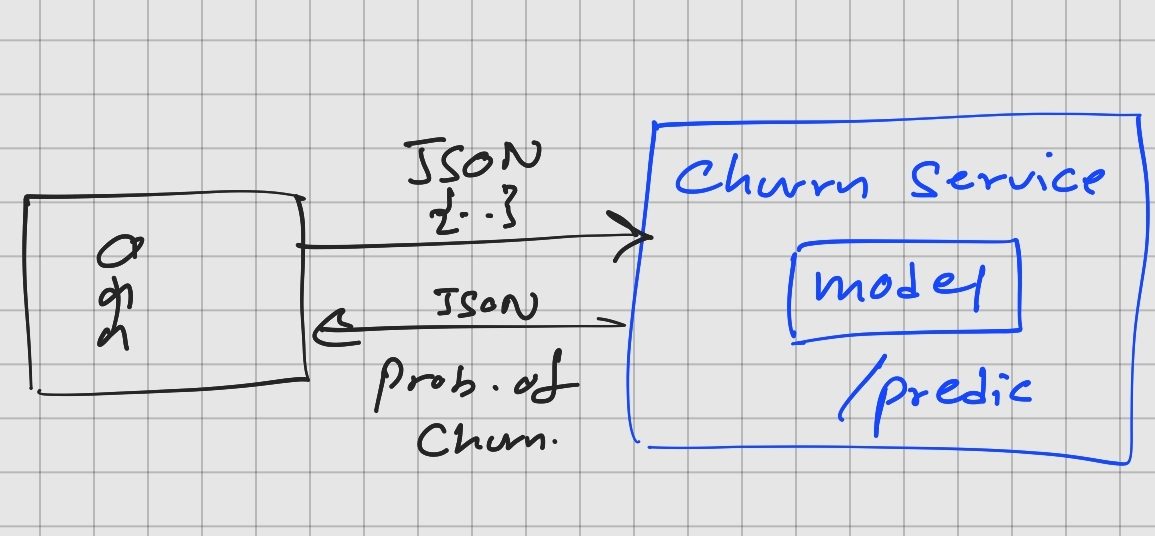 JSON
{..}
JSON
Prob. of
Churn.
Churn Service
model
/predic